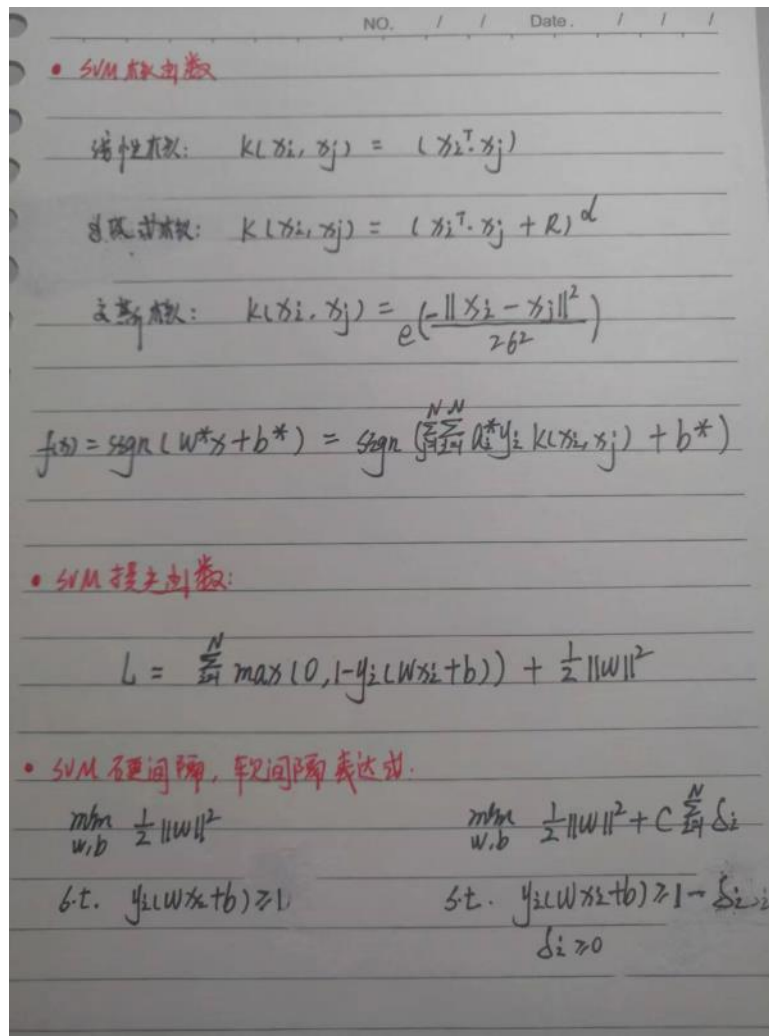 NO. / / Date. / / /
• SVM核函数
线性核: k(xi, xj) = (xi^T·xj)
多项式核: k(xi, xj) = (xi^T·xj + R)^d
高斯核: k(xi, xj) = e(-||xi - xj||^2 / 2σ^2)
f(x) = sign(w*x+b*) = sign(∑_{j=1}^N ∑_{i=1}^N α_i* yi k(xi, xj) + b*)
• SVM 损失函数:
L = ∑_{i=1}^N max(0, 1-yi(wxi+b)) + 1/2 ||w||^2
• SVM 硬间隔, 软间隔表达式.
min_{w,b} 1/2 ||w||^2 min_{w,b} 1/2 ||w||^2 + C ∑_{i=1}^N δi
s.t. yi(wxi+b) ≥ 1 s.t. yi(wxi+b) ≥ 1 - δi
δi ≥ 0